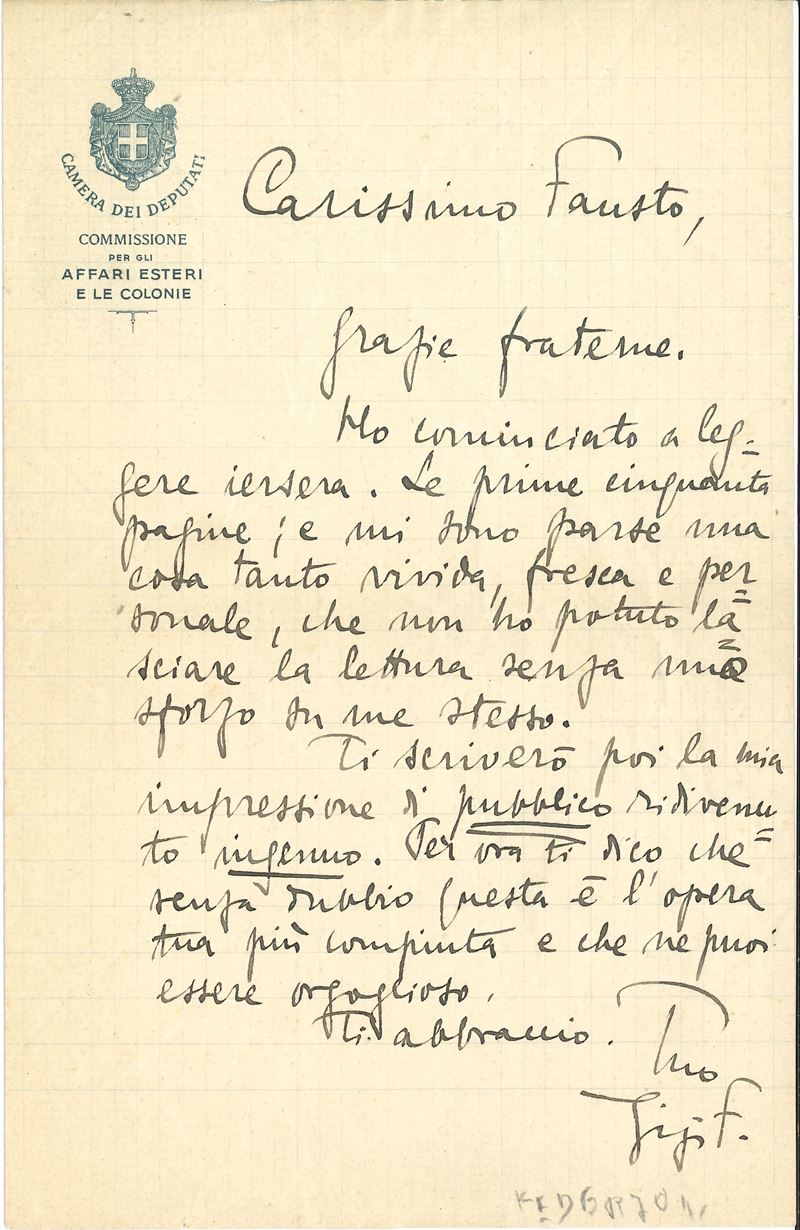 CAMERA DEI DEPUTATI
COMMISSIONE
PER GLI
AFFARI ESTERI
E LE COLONIE
Carissimo Fausto,
Grazie fraterne.
Ho cominciato a leg-
gere iersera. Le prime cinquanta
pagine; e mi sono parse una
cosa tanto vivida, fresca e per=
sonale, che non ho potuto la=
sciare la lettura senza uno
sforzo su me stesso.
Ti scriverò poi la mia
impressione di pubblico ridivenu=
to ingenuo. Per ora ti dico che
senza dubbio questa è l'opera
tua più compiuta e che ne puoi
essere orgoglioso.
Ti abbraccio. Tuo
Gigi F.
FEDERZONI